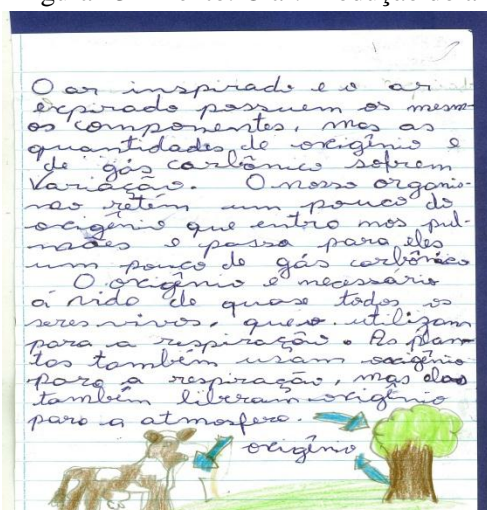 O ar inspirado e o ar
expirado possuem os mesm-
os componentes, mas as
quantidades de oxigênio e
de gás carbônico sofrem
variação. O nosso organis-
mo retém um pouco do
oxigênio que entra nos pul-
mões e passa para eles
um pouco de gás carbônico
O oxigênio é necessário
á vida de quase todos os
seres vivos, que o utilizam
para a respiração. As plan
tas também usam oxigênio
para a respiração, mas elas
também liberam oxigênio
para a atmosfera.
oxigênio